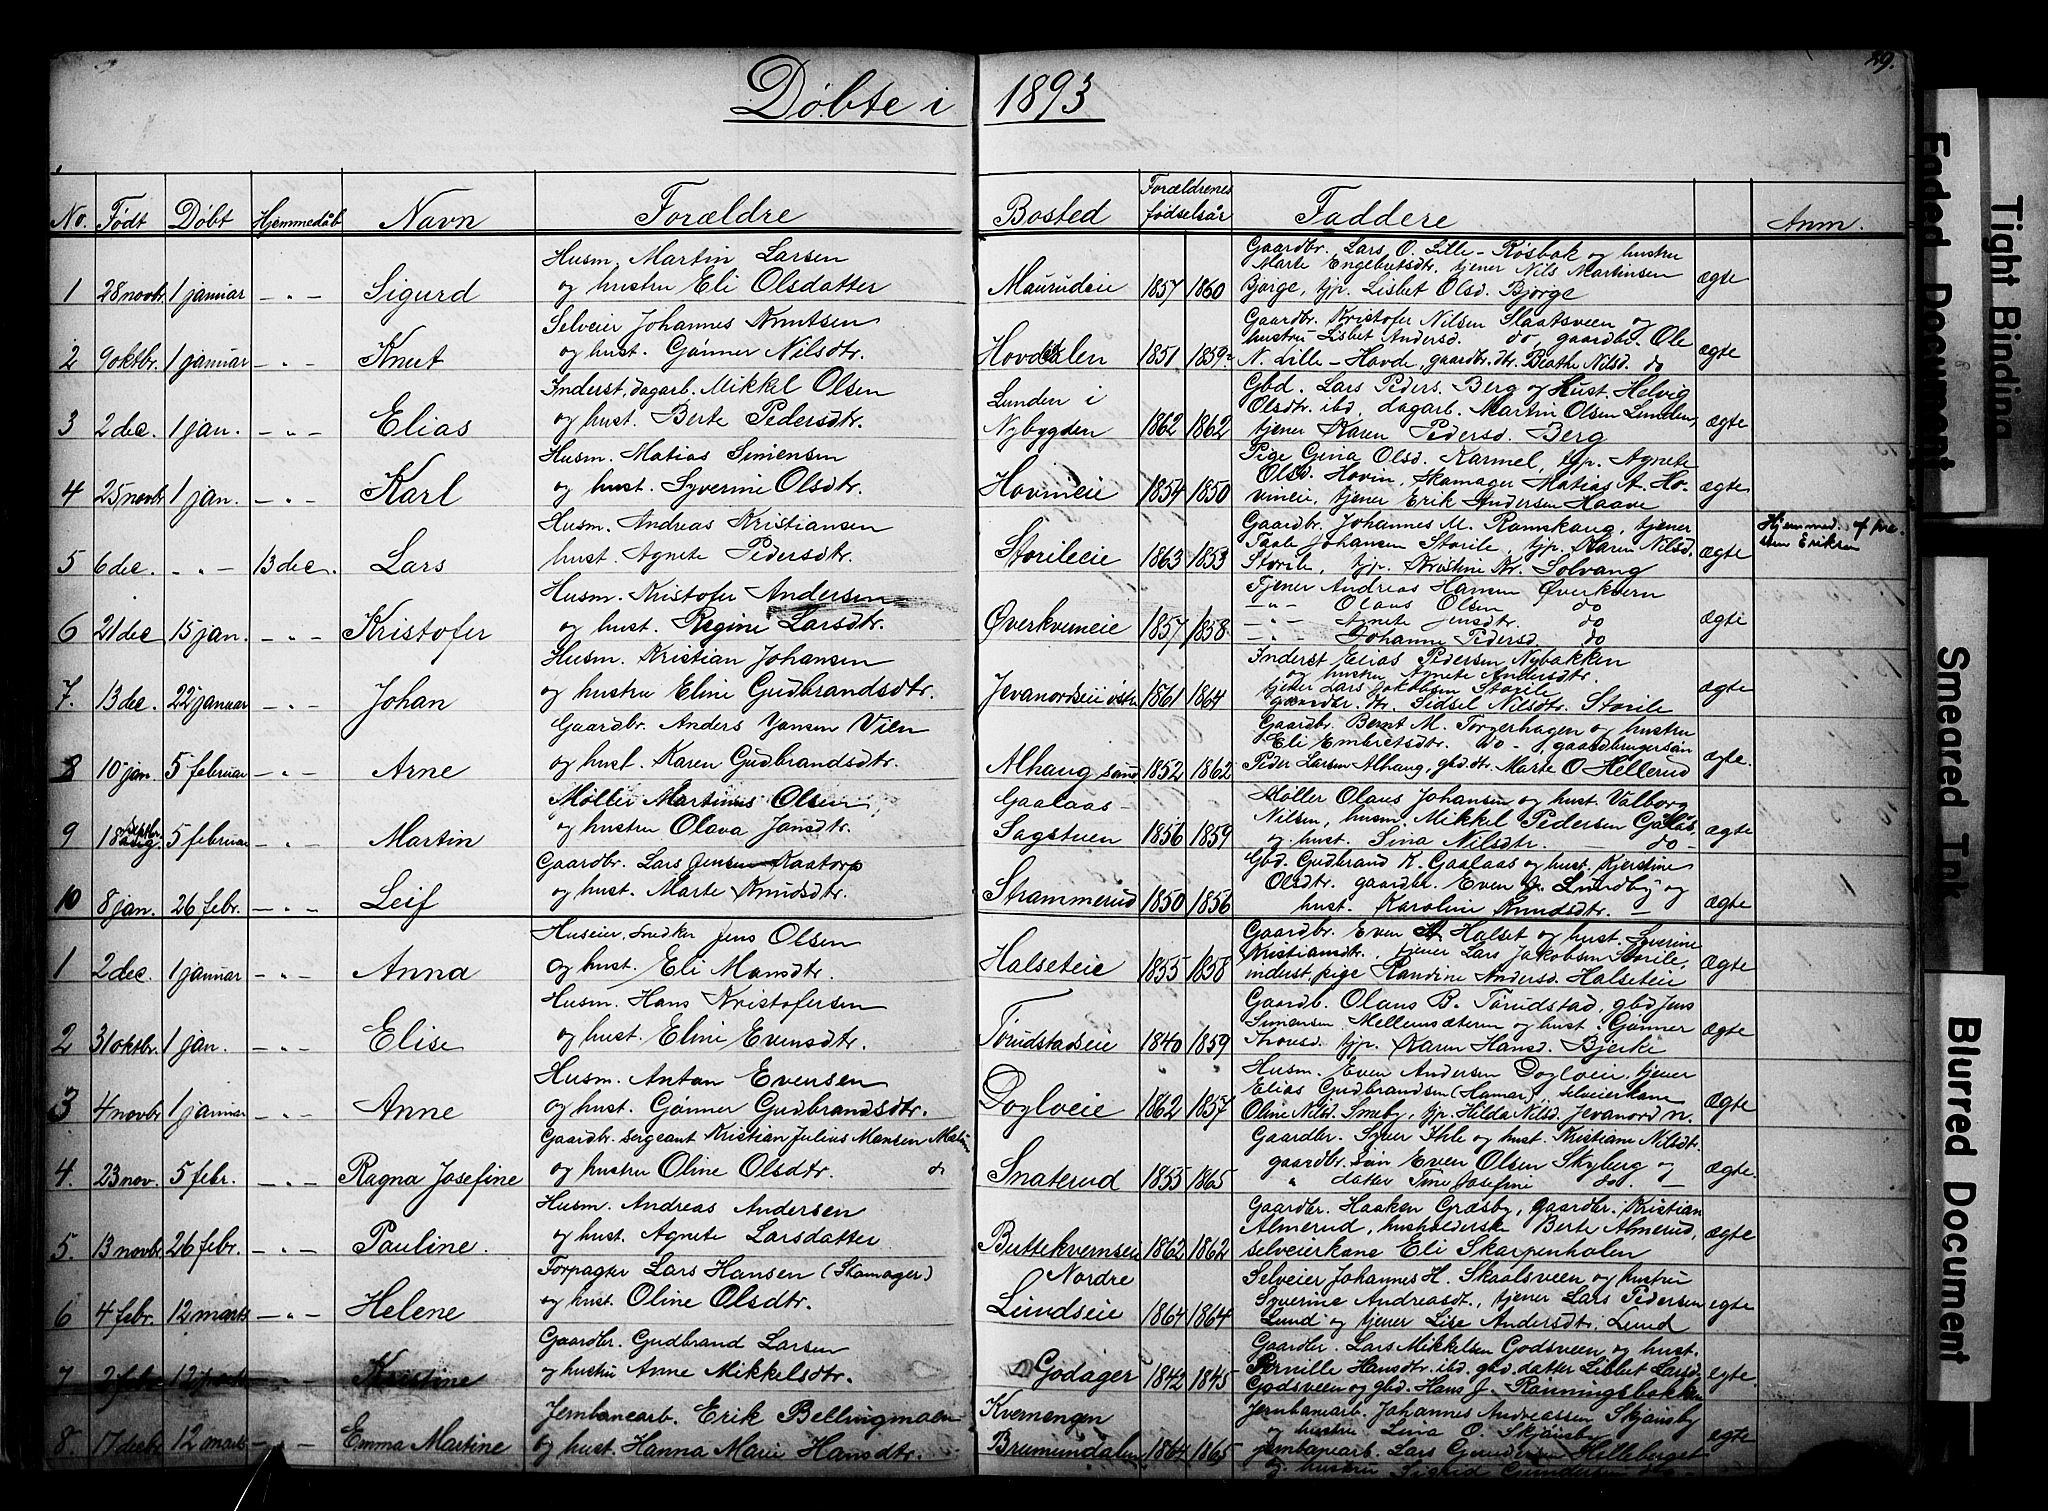 Døbte i 1893
29.
No. Født Døbt Hjemmedøb Navn Forældre Bosted Forældrenes fødselsår Faddere Anm.
Husm. Martin Larsen
1 28 novbr 1 januar — " — Sigurd og hustru Eli Olsdatter Maurudeie 1857 1860 ægte
Gaardbr. Lars O. Lille-Røsbak og hustru
Marte Engebretsdtr, tjener Nils Martinsen
Bjørge, tjp. Lisbet Olsd. Bjørge
Selveier Johannes Knutsen
2 9 oktbr. 1 januar — " — Knut og hust. Gønner Nilsdtr. Hovdedalen 1851 1859 ægte
Gaardbr. Kristofer Nilsen Slaatsveen og
hustru Lisbet Andersd. do, gaardbr. Ole
N. Lille-Hovde, gaardbr. dtr. Beathe Nilsd. do
Inderst, dagarb. Mikkel Olsen
3 2 dec. 1 jan. — " — Elias og hust. Berte Pedersdtr. Lunden i Nybygden 1862 1862 ægte
Gbd. Lars Peders. Berg og Hust. Helvig
Olsdtr. ibd, dagarb. Martin Olsen Lunden,
tjener Karen Pedersd. Berg
Husm. Matias Simensen
4 25 novbr 1 jan. — " — Karl og hust. Syverine Olsdtr. Hovineie 1854 1850 ægte
Pige Gina Olsd. Karmel, tjp. Agnete
Olsd. Hovin, Skomager Matias A. Ho-
vineie, tjener Erik Andersen Haave
Husm. Andreas Kristiansen
5 6 dec. — " — 13 dec. Lars hust. Agnete Pedersdtr. Storileeie 1863 1853 ægte
Gaardbr. Johannes M. Ramskaug, tjener
Johansen Storile, tjp. Karen Nilsd.
Storile, tjp. Kristine Kr. Solvang
Hjemmed. af
Eriksen
Husm. Kristofer Andersen
6 21 dec 15 jan. — " — Kristofer og hust. Regine Larsdtr. Øverkverneie 1857 1858 ægte
Tjener Andreas Hansen Øverkvern
— " — Olaus Olsen do
— " — Agnete Jensdtr. do
— " — Johanne Pedersd do
Husm. Kristian Johansen
7. 13 dec. 22 januar — " — Johan og hustru Eline Gudbrandsdtr. Jevanordseie østre 1861 1864 ægte
Inderst Elias Pedersen Nybakken
og hustru Agnete Andersdtr.
tjener Lars Jakobsen Storile
gaardbr. dtr. Sidsel Nilsdtr. Storile
Gaardbr. Anders Jansen Vien
8 10 jan. 5 februar — " — Arne og hust. Karen Gudbrandsdtr. Alhaug 1852 1862 ægte.
Gaardbr. Bernt M. Torgerhagen og hustru
Eli Embretsdtr. do -, gaardbrugersøn
Peder Larsen Alhaug, gbd. dtr. Marte O Hellerud
Møller Martinus Olsen
9 18 septbr. 5 februar — " — Martin og hustru Olava Jansdtr. Gaalaas-Sagstuen 1856 1859 ægte
Møller Olaus Johansen og hust. Valborg
Nilsen, husm. Mikkel Pedersen Gålås
og hust. Sina Nilsdtr. — do —
Gaardbr. Lars Jensen Kaatorp
10 8 jan. 26 febr. — " — Leif og hust. Marte Knudsdtr. Strammerud 1850 1856 ægte
Gbd. Gudbrand K. Gaalaas og hust. Kjerstine
Olsdtr. gaardbr. Even J. Lundby og
hust. Karoline Knudsdtr. —
Huseier, snedker Jens Olsen
1 2 dec. 1 januar — " — Anna og hust. Eli Mansdtr. Halseteie 1855 1858 ægte
Gaardbr. Even A. Halset og hust. Severine
Kristiansdtr., tjener Lars Jakobsen Storile,
inderst, pige Randine Andersd. Halseteie
Husm. Hans Kristofersen
2 31 oktbr. 1 jan. — " — Elise og hust. Eline Evensdtr. Tørudstadseie 1840 1859 ægte
Gaardb. Olaus B. Tørudstad, gbd Jens
Simensen Mellemsæteren og hust. Gønner
tjp. Karen Hansd. Bjerke
Husm. Antan Evensen
3 4 novbr 1 januar — " — Anne og hust. Gønner Gudbrandsdtr. Dogloeie 1862 1857 ægte
Husm. Even Andersen Dogloeie, tjener
Elias Gudbrandsen (Hamar), selveierkone
Oline Nilsd. Smeby, tjp. Hilda Nilsd. Jevanord n.
Gaardbr. sergeant Kristian Julius Mansen
4. 23 nov. 5 febr. — " — Ragna Josefine og hustru Oline Olsdtr. Snaterud 1855 1865 ægte.
Gaardbr. Syver Ihle og hust. Kristiane Nilsdt.
gaardbr. søn Even Olsen Skyberg og
" datter Tine Josefine do. —
Husm. Andreas Andersen
5. 13 novbr 26 febr. — " — Pauline. og hust. Agnete Larsdatter Buttekvernseie 1862 1862 ægte
Gaardbr. Haaken Græsby, gaardbr. Kristian
Almerud, husholderske Berte Almerud,
selveierkone Eli Skarpenholen
Forpagter Lars Hansen (Skomager)
6 4 febr. 12 marts — " — Helene og hust. Oline Olsdtr. Nordre Lundseie 1864 1864 egte
Selveier Johannes H. Skaalsveen og hustru
Syverine Andreasdt., tjener Lars Pedersen
Lund og tjener Lise Andersdtr. Lund
Gaardbr. Gudbrand Larsen
7 2 febr 12 marts Kristine og hustru Anne Mikkelsdtr. Godager 1842 1845 egte.
Gaardbr. Lars Mikkelsen Godsveen og hust.
Pernille Hansdtr. ibd. gbd datter Lisbet Larsd.
Godsveen og gbd. Hans J. Rønningsbakken
Jernbanearb. Erik Bellingmoen
8. 17 decbr 12 marts — " — Emma Martine og hust. Hanna Marie Hansdtr. Kvernengen Brumunddalen 1864 1865 egte
Jernbanearb. Johannes Andreassen Skjønsby
og hustru Lina O. Skjønsby
jernbanearb. Lars Gundersen Helleberget
og hustru Sigrid Gundersen do —
Tight Binding
Faded Document
Smeared Ink
Blurred Document